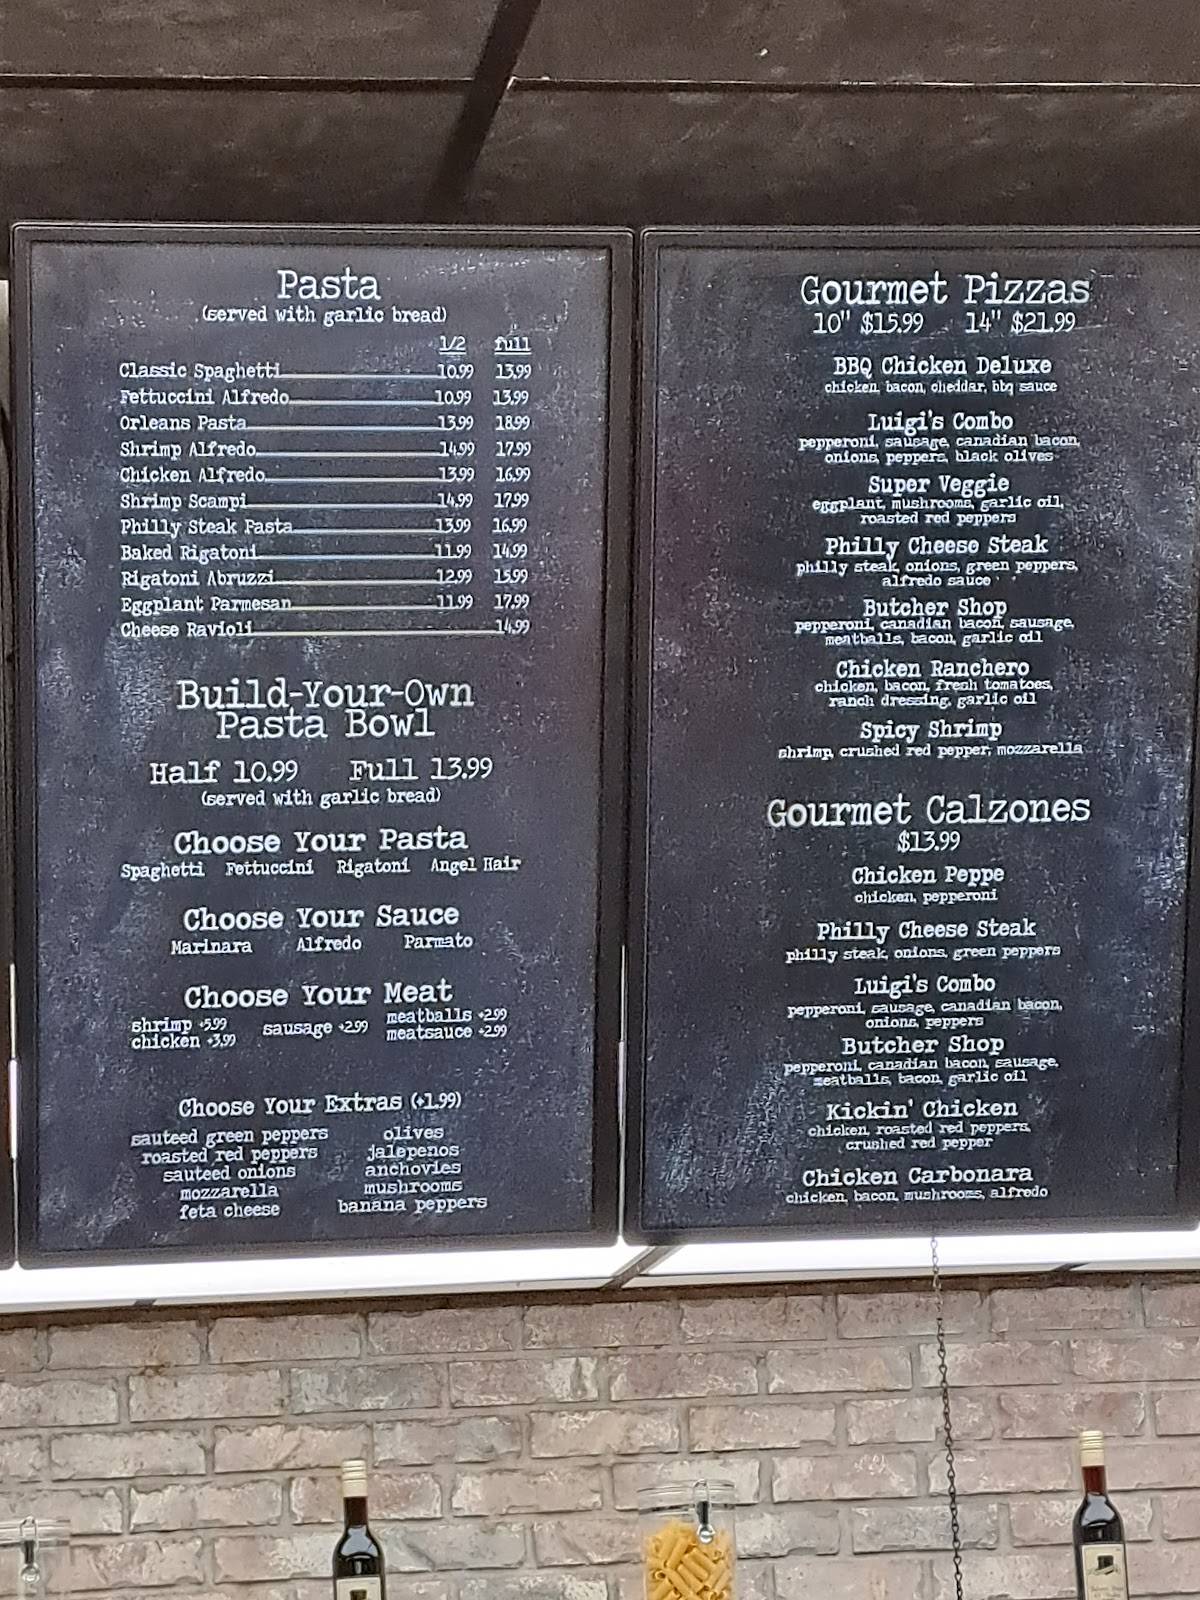 Pasta
(served with garlic bread)
1/2 full
Classic Spaghetti 10.99 13.99
Fettuccini Alfredo 10.99 13.99
Orleans Pasta 13.99 18.99
Shrimp Alfredo 14.99 17.99
Chicken Alfredo 13.99 16.99
Shrimp Scampi 14.99 17.99
Philly Steak Pasta 13.99 16.99
Baked Rigatoni 11.99 14.99
Rigatoni Abruzzi 12.99 15.99
Eggplant Parmesan 11.99 17.99
Cheese Ravioli 14.99
Build-Your-Own
Pasta Bowl
Half 10.99 Full 13.99
(served with garlic bread)
Choose Your Pasta
Spaghetti Fettuccini Rigatoni Angel Hair
Choose Your Sauce
Marinara Alfredo Parmato
Choose Your Meat
shrimp +5.99
chicken +3.99
sausage +2.99
meatballs +2.99
meatsauce +2.99
Choose Your Extras (+1.99)
sauteed green peppers
roasted red peppers
sauteed onions
mozzarella
feta cheese
olives
jalepenos
anchovies
mushrooms
banana peppers
Gourmet Pizzas
10" $15.99 14" $21.99
BBQ Chicken Deluxe
chicken, bacon, cheddar, bbq sauce
Luigi's Combo
pepperoni, sausage, canadian bacon,
onions, peppers, black olives
Super Veggie
eggplant, mushrooms, garlic oil,
roasted red peppers
Philly Cheese Steak
philly steak, onions, green peppers,
alfredo sauce
Butcher Shop
pepperoni, canadian bacon, sausage,
meatballs, bacon, garlic oil
Chicken Ranchero
chicken, bacon, fresh tomatoes,
ranch dressing, garlic oil
Spicy Shrimp
shrimp, crushed red pepper, mozzarella
Gourmet Calzones
$13.99
Chicken Peppe
chicken, pepperoni
Philly Cheese Steak
philly steak, onions, green peppers
Luigi's Combo
pepperoni, sausage, canadian bacon,
onions, peppers
Butcher Shop
pepperoni, canadian bacon, sausage,
meatballs, bacon, garlic oil
Kickin' Chicken
chicken, roasted red peppers,
crushed red pepper
Chicken Carbonara
chicken, bacon, mushrooms, alfredo